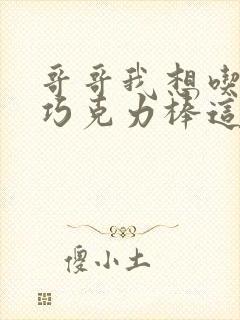 哥哥我想喫
巧克力棒這
傻小土